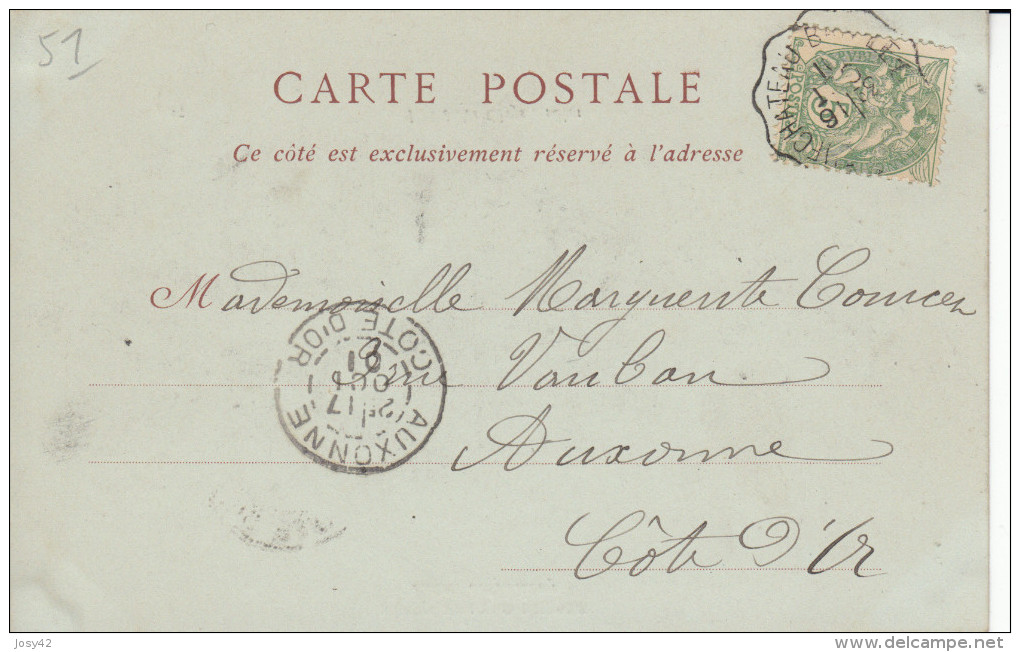 51
CARTE POSTALE
Ce côté est exclusivement réservé à l'adresse
Mademoiselle Marguerite
rue Vauban
Auxonne
Côte d'Or
AUXONNE
COTE D'OR
17
OCT
01
5
josy42
delcampe.net